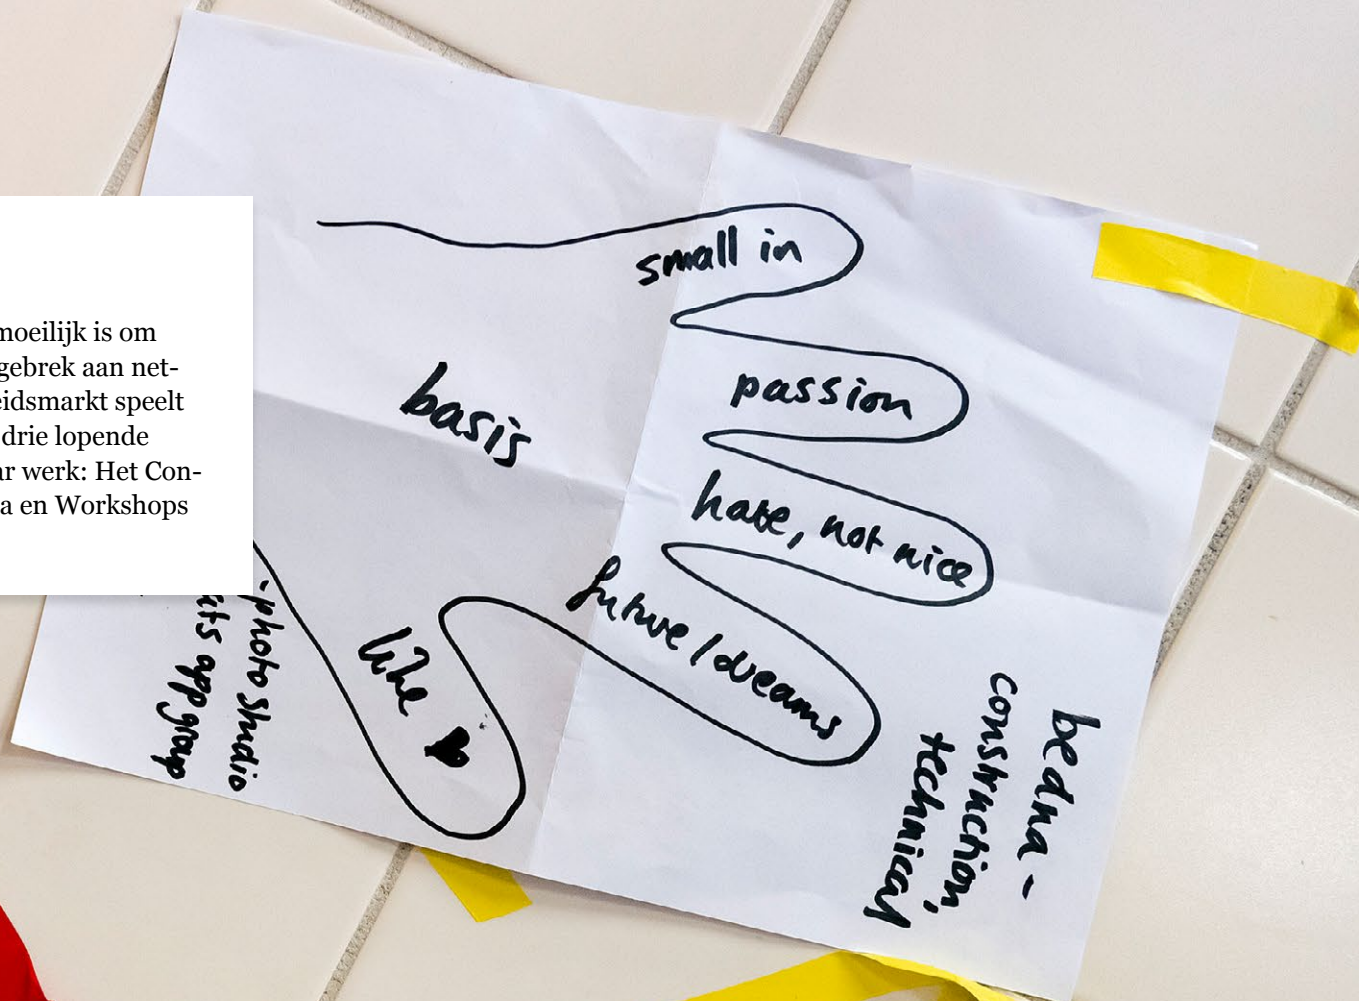 moeilijk is om
gebrek aan net-
eidsmarkt speelt
drie lopende
ar werk: Het Con-
a en Workshops
small in
passion
hate, not nice
future/dreams
basis
like
- photo studio
ts app group
bedna -
construction,
technical